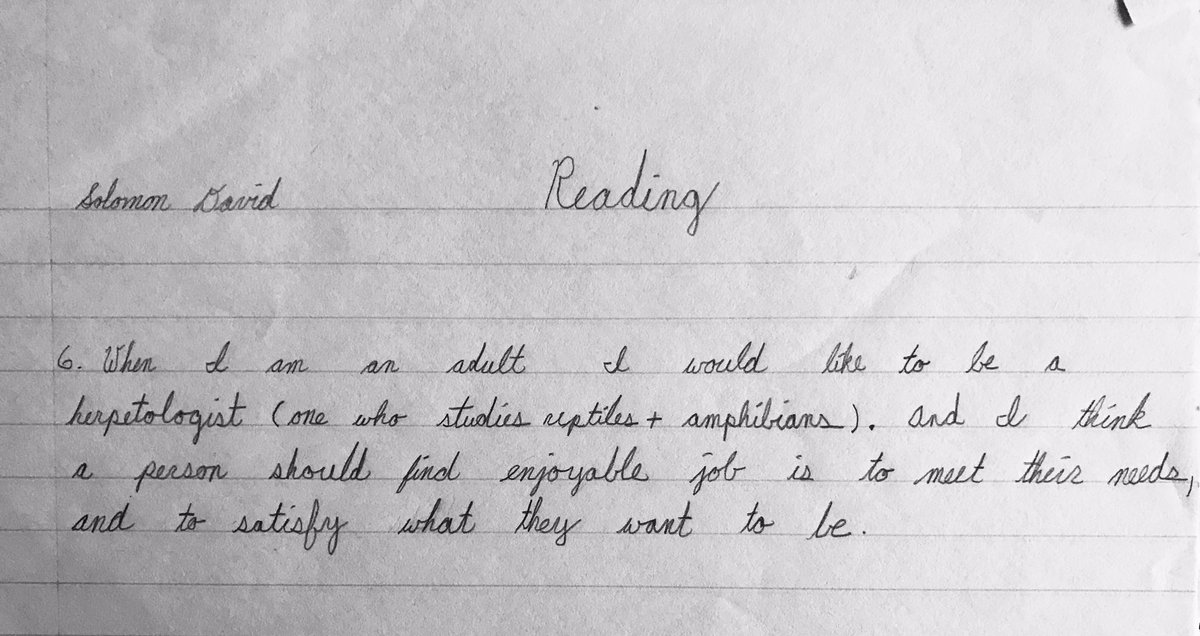 Solomon David Reading
6. When I am an adult I would like to be a
herpetologist (one who studies reptiles + amphibians). and I think
a person should find enjoyable job is to meet their needs,
and to satisfy what they want to be.